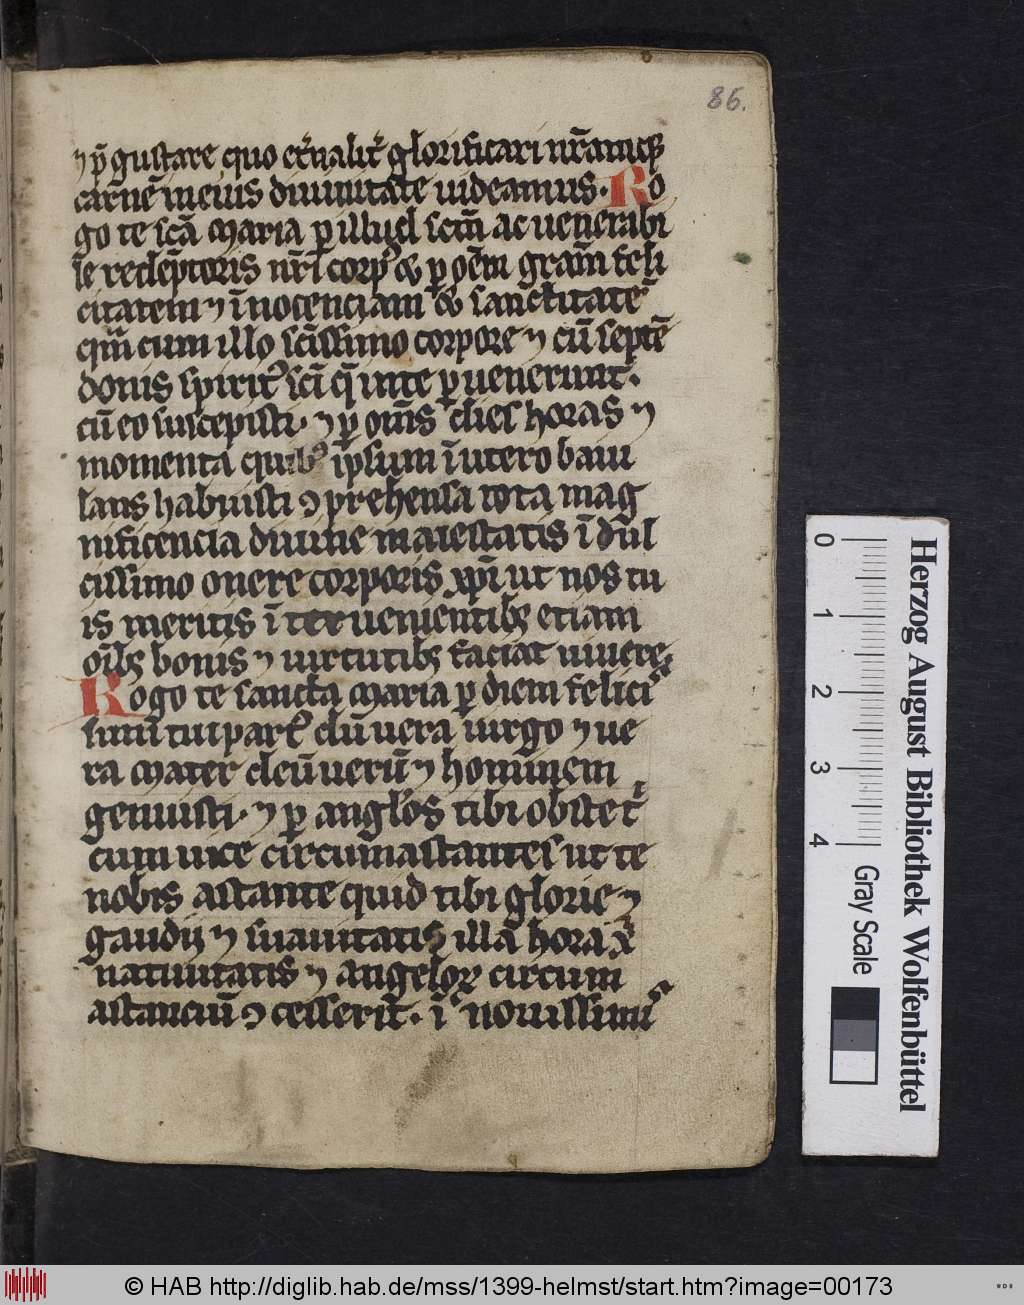 86.
⁊ p̄gustare quo et̄nalit̄ glorificari nr̄amq;
carnē in eius diuinitate uideamus. Ro
go te sc̄a maria ꝑ illud sc̄m ac uenerabi
le redēptoris nr̄i corpꝰ & ꝑ oēm gr̄am feli
citatem ⁊ īnocenciam & sanctitatē
qm̄ cum illo sc̄issimo corpore ⁊ cū septē
donis spiritꝰ sc̄i q̄ in te ꝑuenerunt.
cū eo suscepisti. ⁊ ꝑ om̄s dies horas ⁊
momenta quibꝰ ip̄sum ī utero baiu
lans habuisti ꝯprehensa tota mag
nificencia diuine maiestatis ī dul
cissimo onere corporis xp̄i ut nos tu
is meritis ī te uenientibꝫ etiam
oīb; bonis ⁊ uirtutibꝫ faciat uiuere
Rogo te sancta maria ꝑ diem felici
simū tui partꝰ dū uera uirgo ⁊ ue
ra mater deū uerū ⁊ hominem
genuisti. ⁊ ꝑ angl̄os tibi obstet̄
cum uice circumastantes ut te
nobis astante quid tibi glorie ⁊
gaudij ⁊ suauitatis illā hora x̄
natiuitatis ⁊ angeloꝝ circum
astanciū ꝯcesserit. ī nouissimi
Herzog August Bibliothek Wolfenbüttel
0 1 2 3 4
Gray Scale
© HAB http://diglib.hab.de/mss/1399-helmst/start.htm?image=00173